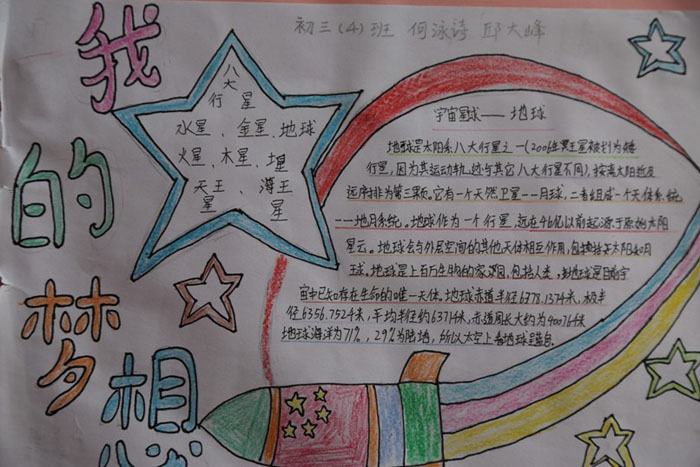 初三(4)班 何泳诗 邱大峰
我的梦想
八大
行星
水星、金星、地球
火星、木星、
天王星、海王星
宇宙星球——地球
地球是太阳系八大行星之一(2006年冥王星被划为矮
行星,因为其运动轨迹与其它八大行星不同),按离太阳由近
远序排为第三颗。它有一个天然卫星--月球,二者组成一个天体系统
--地月系统。地球作为一个行星,远在46亿以前起源于原始太阳
星云。地球会与外层空间的其他天体相互作用,包括太阳和月
球。地球是上百万生物的家园,包括人类,地球是目前宇
宙中已知存在生命的唯一天体。地球赤道半径6378.137千米,极半
径6356.752千米,平均半径约6371千米,赤道周长大约为40076千米
地球海洋为71%,29%为陆地,所以太空上看地球呈蓝色